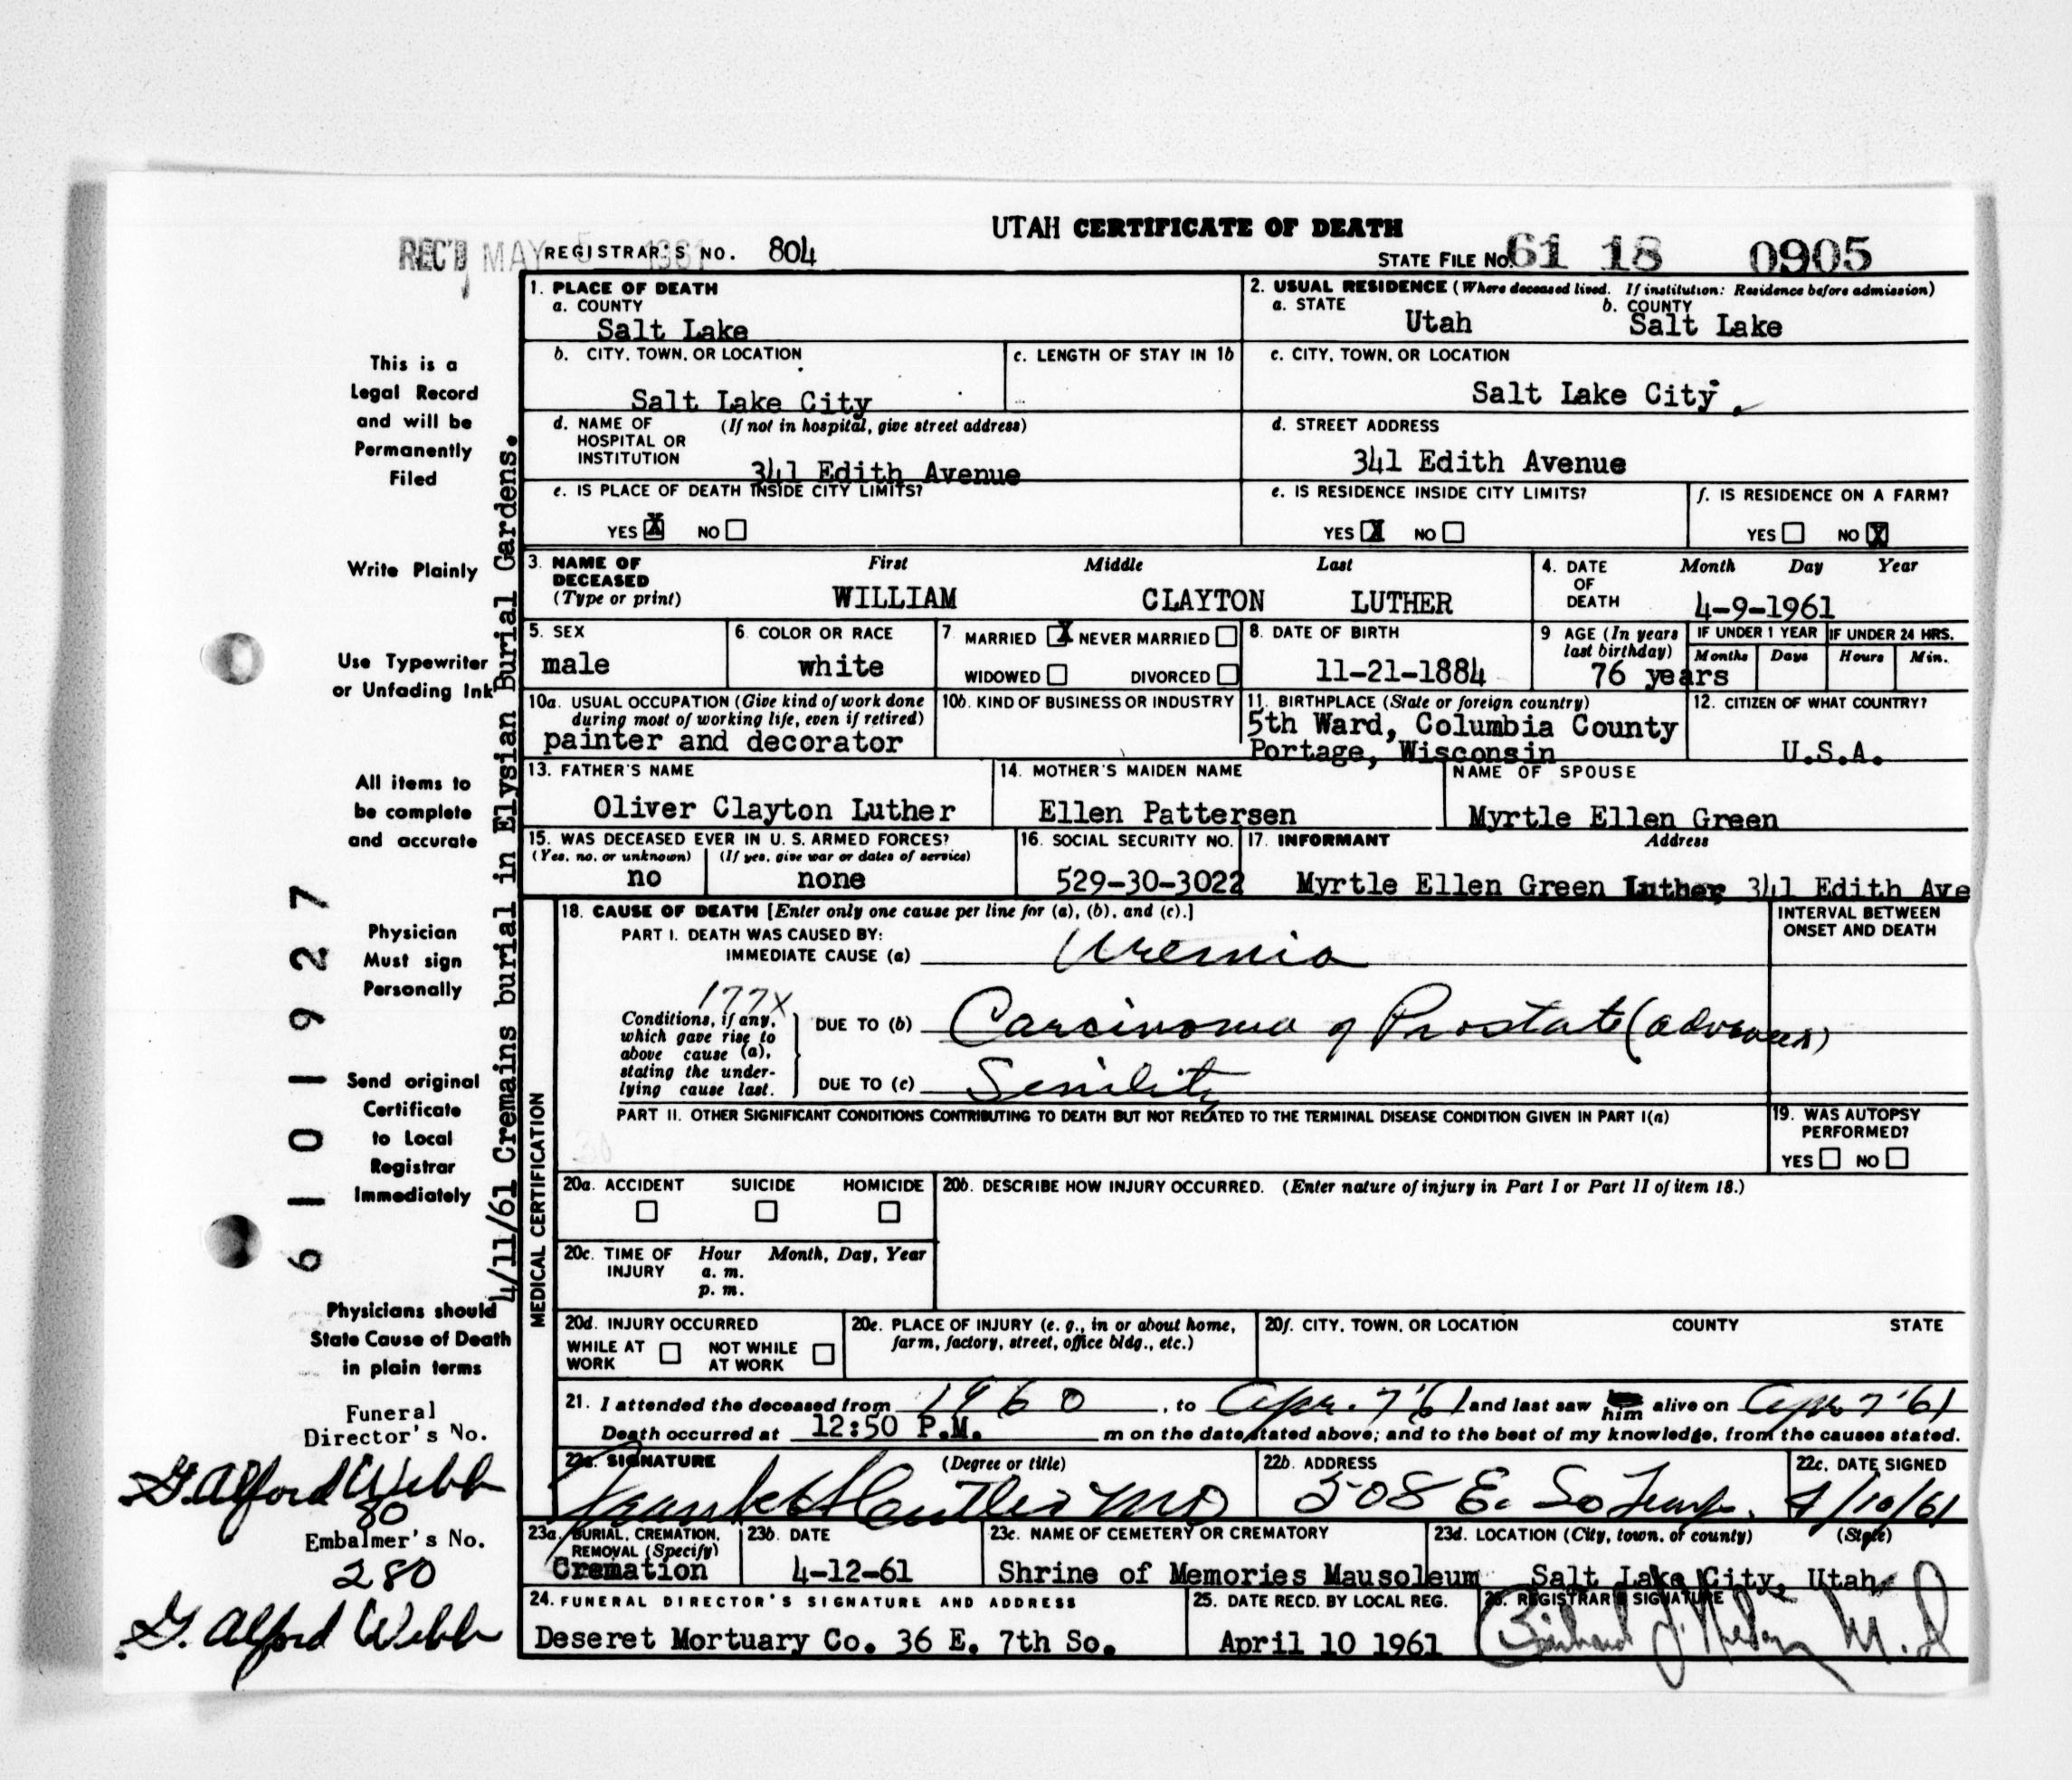 UTAH CERTIFICATE OF DEATH
REC'D MAY 5 1961
REGISTRAR'S NO. 804
STATE FILE NO. 61 18 0905
1. PLACE OF DEATH
a. COUNTY
Salt Lake
2. USUAL RESIDENCE (Where deceased lived. If institution: Residence before admission)
a. STATE Utah b. COUNTY Salt Lake
b. CITY, TOWN, OR LOCATION
Salt Lake City
c. LENGTH OF STAY IN 1b
c. CITY, TOWN, OR LOCATION
Salt Lake City,
d. NAME OF HOSPITAL OR INSTITUTION (If not in hospital, give street address)
341 Edith Avenue
d. STREET ADDRESS
341 Edith Avenue
e. IS PLACE OF DEATH INSIDE CITY LIMITS?
YES X NO
e. IS RESIDENCE INSIDE CITY LIMITS?
YES X NO
f. IS RESIDENCE ON A FARM?
YES NO X
3. NAME OF DECEASED (Type or print)
First Middle Last
WILLIAM CLAYTON LUTHER
4. DATE OF DEATH Month Day Year
4-9-1961
5. SEX
male
6. COLOR OR RACE
white
7. MARRIED X NEVER MARRIED
WIDOWED DIVORCED
8. DATE OF BIRTH
11-21-1884
9 AGE (In years last birthday)
76 years
IF UNDER 1 YEAR IF UNDER 24 HRS.
Months Days Hours Min.
10a. USUAL OCCUPATION (Give kind of work done during most of working life, even if retired)
painter and decorator
10b. KIND OF BUSINESS OR INDUSTRY
11. BIRTHPLACE (State or foreign country)
5th Ward, Columbia County
Portage, Wisconsin
12. CITIZEN OF WHAT COUNTRY?
U.S.A.
13. FATHER'S NAME
Oliver Clayton Luther
14. MOTHER'S MAIDEN NAME
Ellen Pattersen
NAME OF SPOUSE
Myrtle Ellen Green
15. WAS DECEASED EVER IN U. S. ARMED FORCES?
(Yes, no, or unknown) (If yes, give war or dates of service)
no none
16. SOCIAL SECURITY NO.
529-30-3022
17. INFORMANT Address
Myrtle Ellen Green Luther, 341 Edith Ave
MEDICAL CERTIFICATION
18. CAUSE OF DEATH [Enter only one cause per line for (a), (b), and (c).]
INTERVAL BETWEEN ONSET AND DEATH
PART I. DEATH WAS CAUSED BY:
IMMEDIATE CAUSE (a) Uremia
177X
Conditions, if any, which gave rise to above cause (a), stating the underlying cause last.
DUE TO (b) Carcinoma of Prostate (advanced)
DUE TO (c) Senility
PART II. OTHER SIGNIFICANT CONDITIONS CONTRIBUTING TO DEATH BUT NOT RELATED TO THE TERMINAL DISEASE CONDITION GIVEN IN PART I(a)
19. WAS AUTOPSY PERFORMED?
YES NO
20a. ACCIDENT SUICIDE HOMICIDE
20b. DESCRIBE HOW INJURY OCCURRED. (Enter nature of injury in Part I or Part II of item 18.)
20c. TIME OF INJURY Hour Month, Day, Year
a. m.
p. m.
20d. INJURY OCCURRED
WHILE AT WORK NOT WHILE AT WORK
20e. PLACE OF INJURY (e. g., in or about home, farm, factory, street, office bldg., etc.)
20f. CITY, TOWN, OR LOCATION COUNTY STATE
21. I attended the deceased from 1960, to Apr. 7 '61 and last saw him alive on Apr 7 '61
Death occurred at 12:50 P.M. m on the date stated above; and to the best of my knowledge, from the causes stated.
22a. SIGNATURE (Degree or title)
MD
22b. ADDRESS
508 E. So Temp.
22c. DATE SIGNED
4/10/61
23a. BURIAL, CREMATION, REMOVAL (Specify)
Cremation
23b. DATE
4-12-61
23c. NAME OF CEMETERY OR CREMATORY
Shrine of Memories Mausoleum
23d. LOCATION (City, town, or county) (State)
Salt Lake City, Utah
24. FUNERAL DIRECTOR'S SIGNATURE AND ADDRESS
Deseret Mortuary Co. 36 E. 7th So.
25. DATE RECD. BY LOCAL REG.
April 10 1961
26. REGISTRAR'S SIGNATURE
M.D
This is a
Legal Record
and will be
Permanently
Filed
Write Plainly
Use Typewriter
or Unfading Ink
All items to
be complete
and accurate
Physician
Must sign
Personally
Send original
Certificate
to Local
Registrar
Immediately
Physicians should
State Cause of Death
in plain terms
Funeral
Director's No.
G. Alford Webb
80
Embalmer's No.
280
G. Alford Webb
6 1 0 1 9 2 7
4/11/61 Cremains burial in Elysian Burial Gardens.